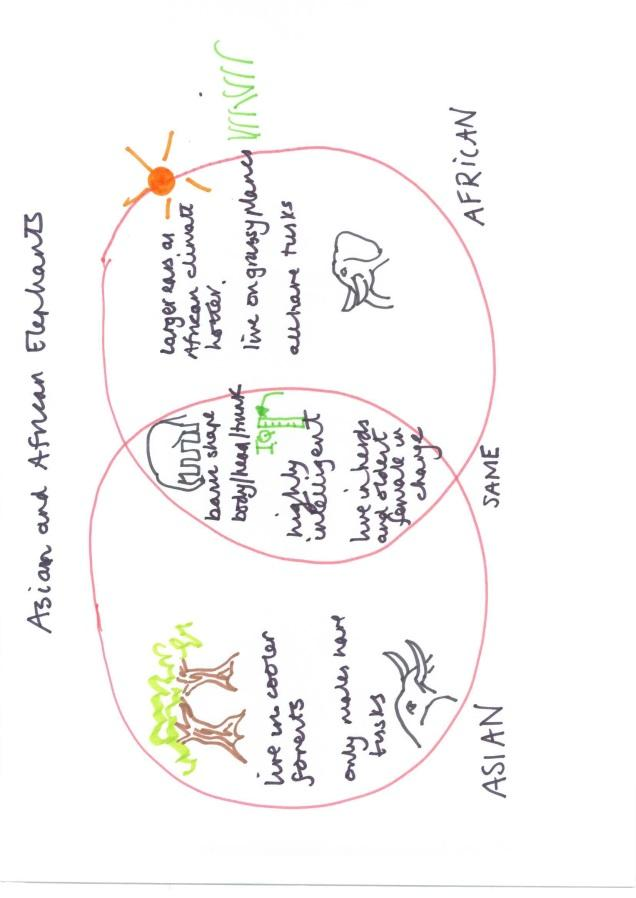 Asian and African Elephants
live in cooler
forests
only males have
tusks
ASIAN
basic shape
body/head/trunk
IQ
highly
intelligent
live in herds
and oldest
female in
charge
SAME
larger ears as
African climate
hotter.
live on grassy planes
all have tusks
AFRICAN